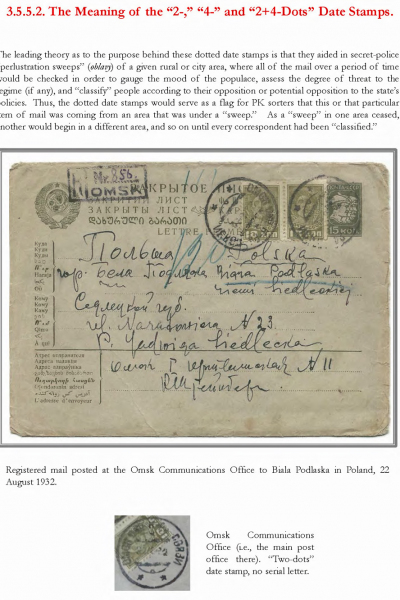 3.5.5.2. The Meaning of the “2-,” “4-” and “2+4-Dots” Date Stamps.
The leading theory as to the purpose behind these dotted date stamps is that they aided in secret-police
“perlustration sweeps” (oblavy) of a given rural or city area, where all of the mail over a period of time
would be checked in order to gauge the mood of the populace, assess the degree of threat to the
regime (if any), and “classify” people according to their opposition or potential opposition to the state’s
policies. Thus, the dotted date stamps would serve as a flag for PK sorters that this or that particular
item of mail was coming from an area that was under a “sweep.” As a “sweep” in one area ceased,
another would begin in a different area, and so on until every correspondent had been “classified.”
№ 856
OMSK
ЗАКРЫТОЕ
ЗАКРЫТЫ ЛІСТ
ᲓᲐᲮᲣᲠᲣᲚᲘ ᲑᲐᲠᲐᲗᲘ
LETTRE
15 КОП
Куди
Куда
Кому
Кому
Польша Polska
гор. Бела Biała Podlaska
Седлецкой губ.
N 23.
P. Jadwiga Siedlecka
Адрес отправителя
Адреса
L adresse d'envoyeur
Омск N 11
Registered mail posted at the Omsk Communications Office to Biala Podlaska in Poland, 22
August 1932.
Omsk Communications
Office (i.e., the main post
office there). “Two-dots”
date stamp, no serial letter.